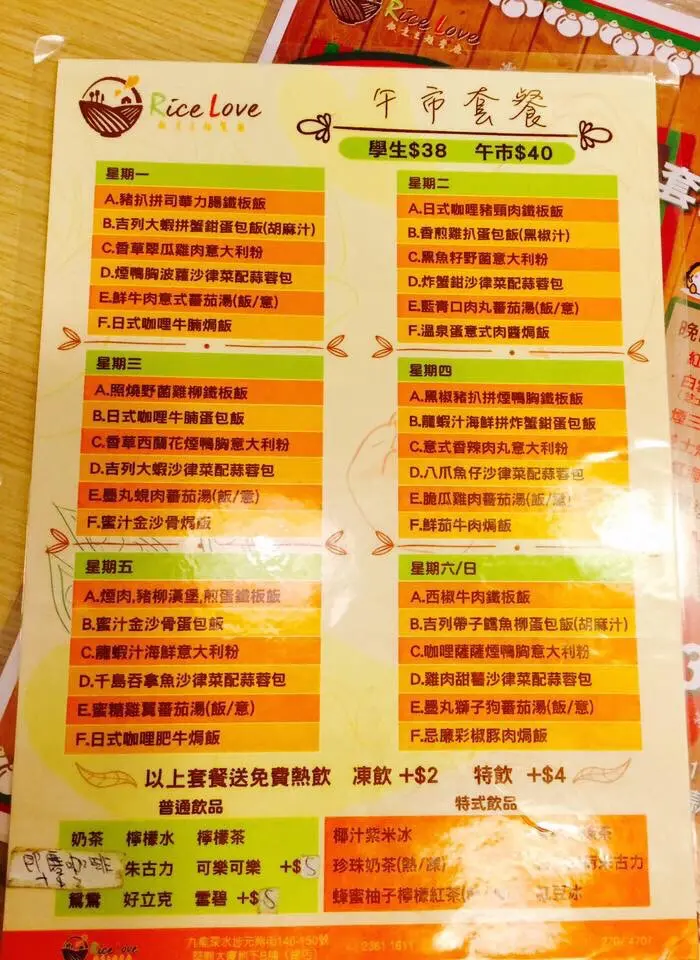 Rice Love
Rice Love
午市套餐
學生$38 午市$40
套
星期一
A.豬扒拼司華力腸鐵板飯
B.吉列大蝦拼蟹鉗蛋包飯(胡麻汁)
C.香草翠瓜雞肉意大利粉
D.煙鴨胸波蘿沙律菜配蒜蓉包
E.鮮牛肉意式蕃茄湯(飯/意)
F.日式咖哩牛腩焗飯
星期二
A.日式咖哩豬頸肉鐵板飯
B.香煎雞扒蛋包飯(黑椒汁)
C.黑魚籽野菌意大利粉
D.炸蟹鉗沙律菜配蒜蓉包
E.藍青口肉丸蕃茄湯(飯/意)
F.溫泉蛋意式肉醬焗飯
星期三
A.照燒野菌雞柳鐵板飯
B.日式咖哩牛腩蛋包飯
C.香草西蘭花煙鴨胸意大利粉
D.吉列大蝦沙律菜配蒜蓉包
E.墨丸蜆肉蕃茄湯(飯/意)
F.蜜汁金沙骨焗飯
星期四
A.黑椒豬扒拼煙鴨胸鐵板飯
B.龍蝦汁海鮮拼炸蟹鉗蛋包飯
C.意式香辣肉丸意大利粉
D.八爪魚仔沙律菜配蒜蓉包
E.脆瓜雞肉蕃茄湯(飯/意)
F.鮮茄牛肉焗飯
星期五
A.煙肉,豬柳漢堡,煎蛋鐵板飯
B.蜜汁金沙骨蛋包飯
C.龍蝦汁海鮮意大利粉
D.千島吞拿魚沙律菜配蒜蓉包
E.蜜糖雞翼蕃茄湯(飯/意)
F.日式咖哩肥牛焗飯
星期六/日
A.西椒牛肉鐵板飯
B.吉列帶子鱈魚柳蛋包飯(胡麻汁)
C.咖哩薩薩煙鴨胸意大利粉
D.雞肉甜薯沙律菜配蒜蓉包
E.墨丸獅子狗蕃茄湯(飯/意)
F.忌廉彩椒豚肉焗飯
以上套餐送免費熱飲 凍飲+$2 特飲 +$4
普通飲品
奶茶 檸檬水 檸檬茶
朱古力 可樂可樂 +$5
鴛鴦 好立克 雪碧 +$5
特式飲品
椰汁紫米冰
珍珠奶茶(熱/凍) 朱古力
蜂蜜柚子檸檬紅茶 紅豆冰
Rice Love
2361 1611